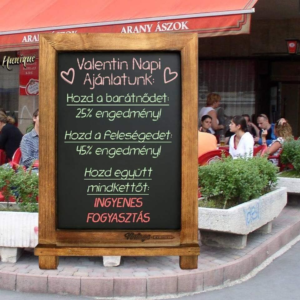 ARANY ÁSZOK
ARANY ÁSZOK
Valentin Napi
Ajánlatunk:
Hozd a barátnődet:
25% engedmény!
Hozd a feleségedet:
45% engedmény!
Hozd együtt
mindkettőt:
INGYENES
FOGYASZTÁS